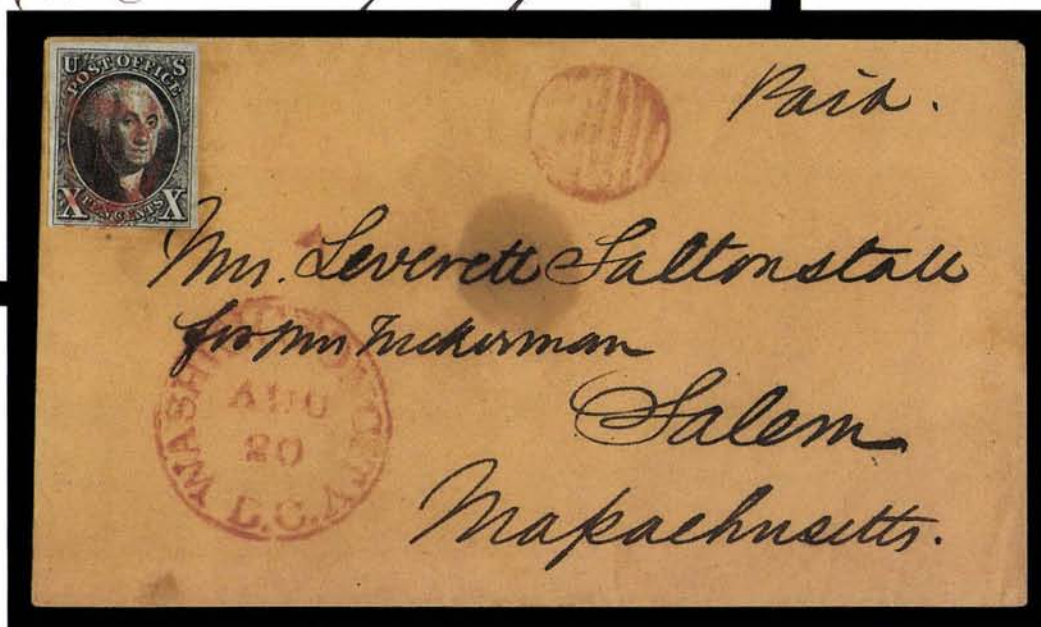 U S
POST OFFICE
X TEN CENTS X
Paid.
Mr. Leverett Saltonstall
for Mr Tuckerman
Salem
Massachusetts.
WASHINGTON CITY
AUG
20
D.C.